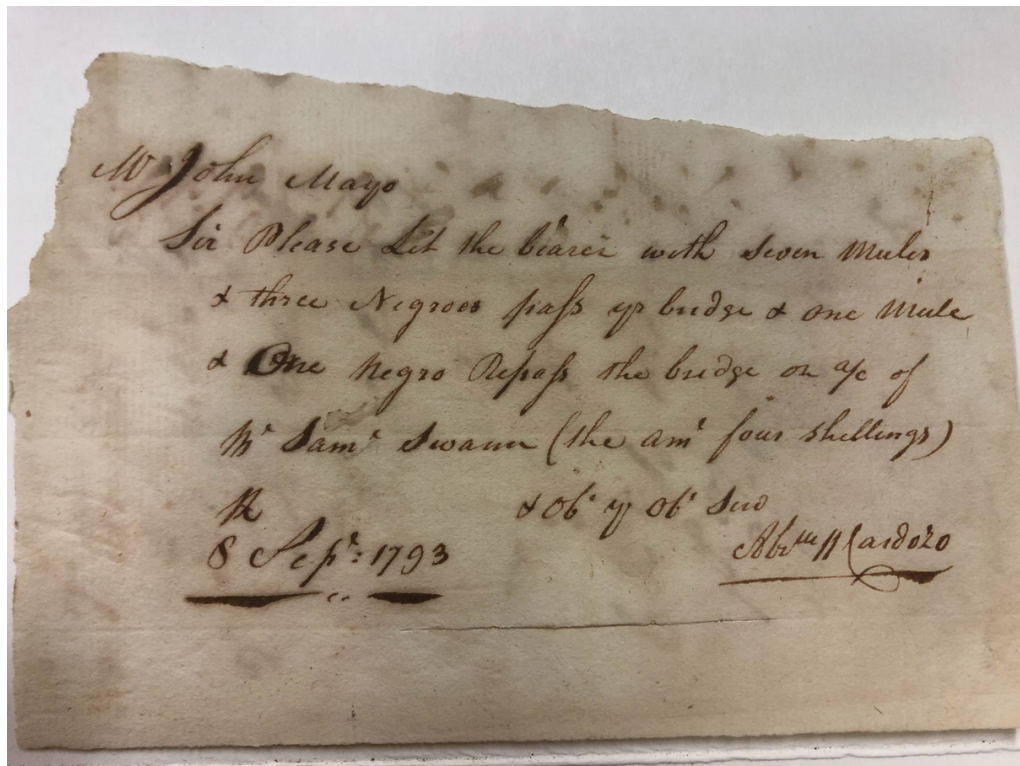 Mr John Mayo
Sir Please Let the bearer with seven Mules
& three Negroes pass yr bridge & one Mule
& One Negro Repass the bridge on a/c of
Mr Saml Swann (the amt four shillings)
& Obt yr Obt Serv
8 Sept: 1793 Abrm H Cardozo